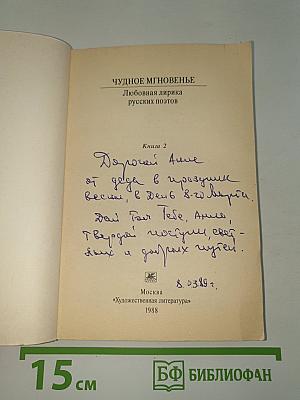 ЧУДНОЕ МГНОВЕНЬЕ
Любовная лирика
русских поэтов
Книга 2
Дорогой Анне
от деда в праздник
весны, в День 8-го Марта.
Дай Бог Тебе, Анна,
твёрдой поступи, свет-
лых и добрых путей.
8.03.89 г.
Москва
«Художественная литература»
1988
15 см
БФ БИБЛИОФАН